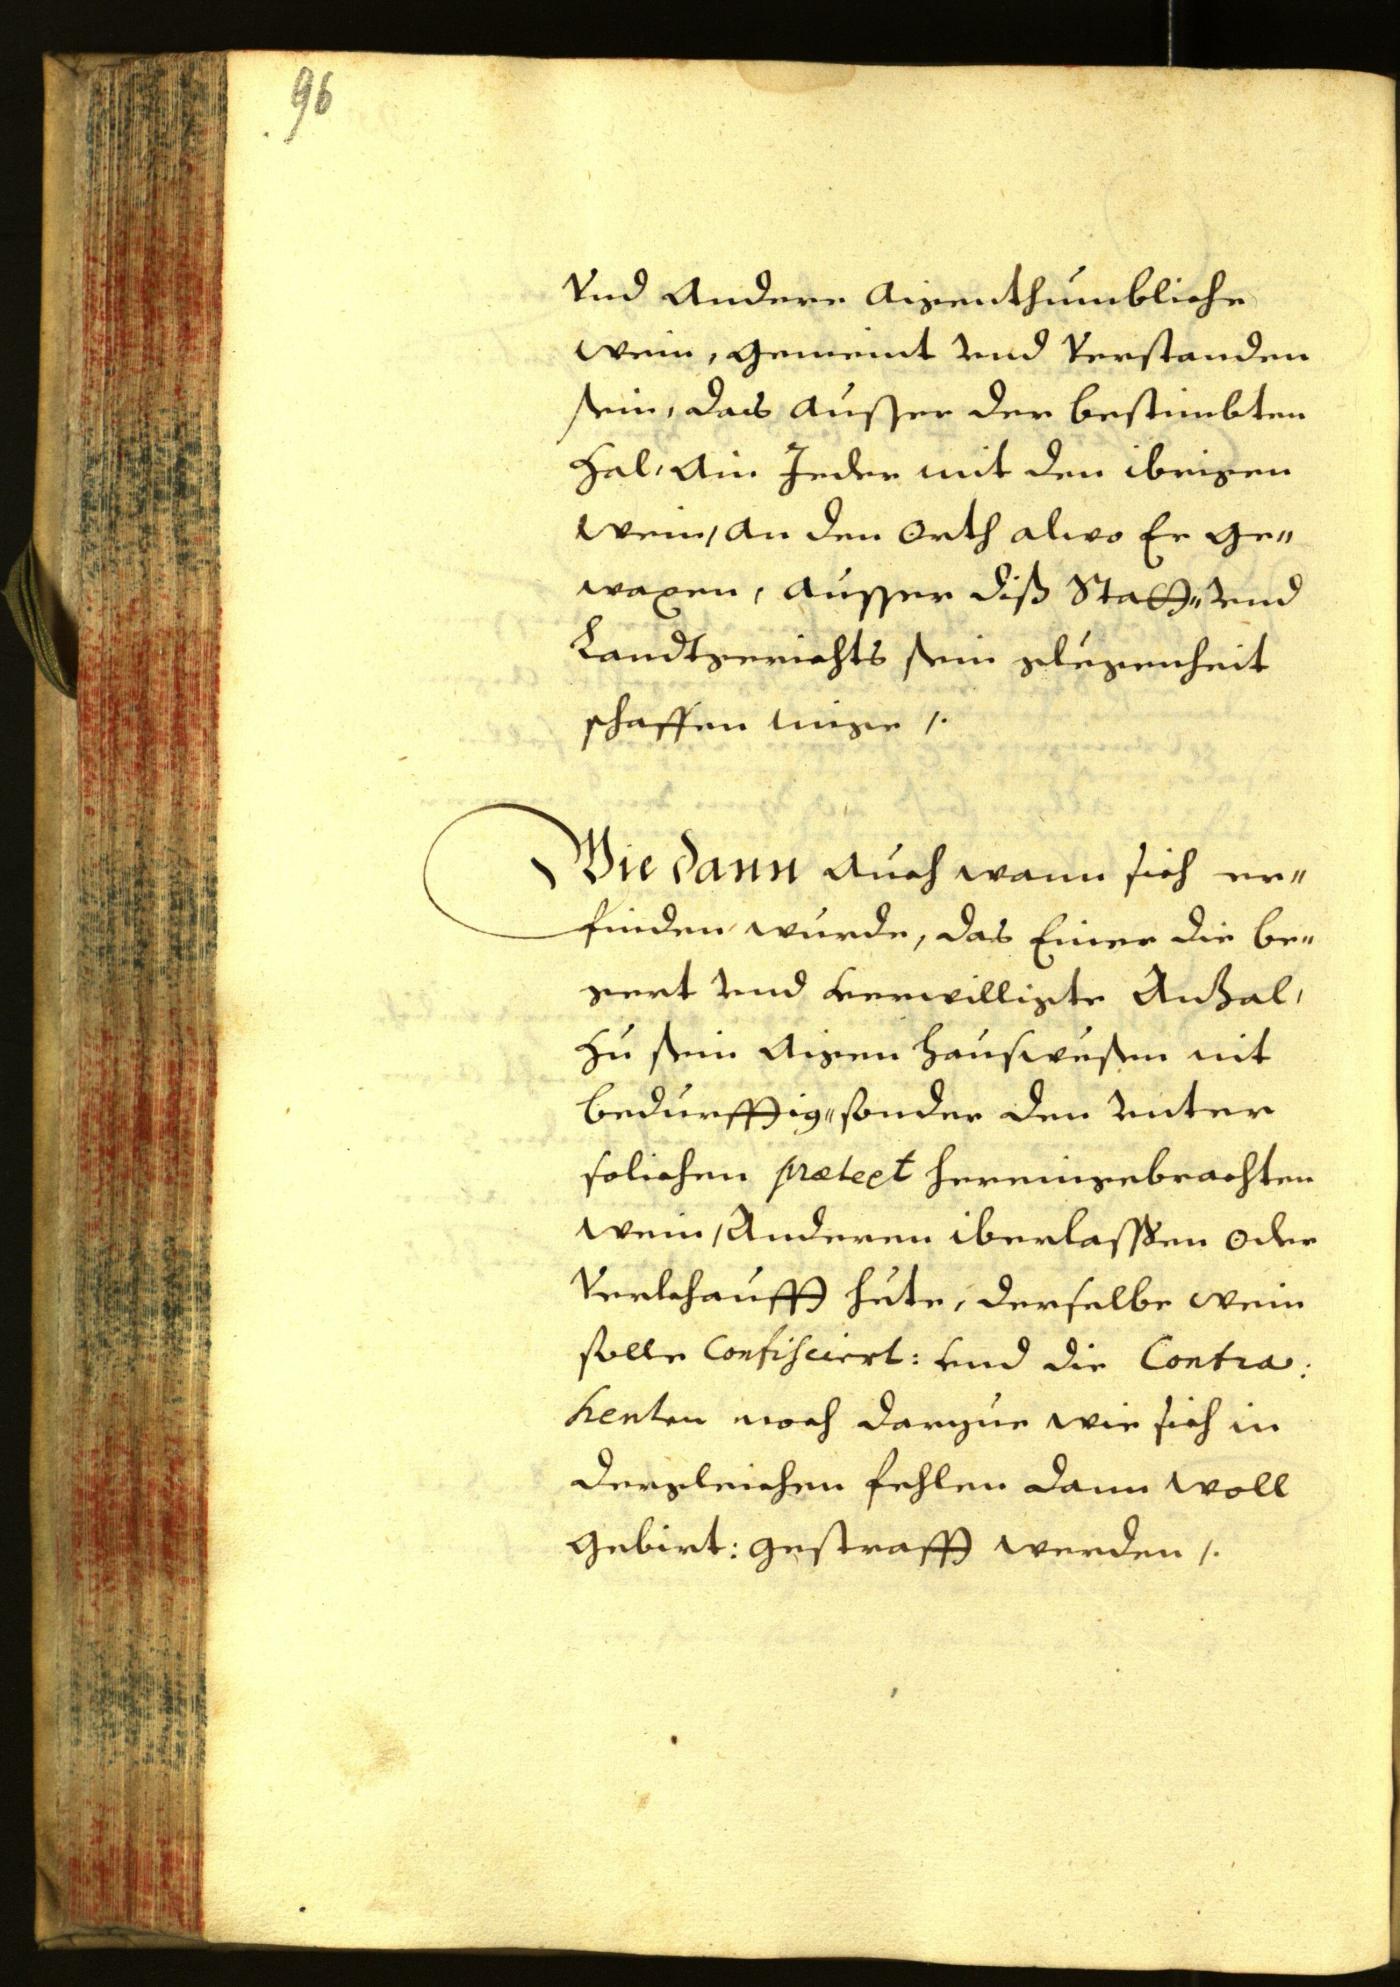 96
Vnd Andere Aigenthumbliche
wein, gemeint vnd Verstanden
sein, das ausser der bestimbten
Zal, Ain Jeder mit den ibrigen
wein, an den Orth alwo Er ge¬
waxen, ausser diß Statt¬ vnd
Landtgerichts sein glegenheit
schaffen mige /.
Wie dann auch wann sich er¬
finden wurde, das Einer die be¬
gert vnd verwilligte Anzal,
zu sein aigen hauswesen nit
bedurfftig¬ sonder den vnter
solichen prætext hereingebrachten
wein, Anderen iberlassen oder
Verkhaufft hete, derselbe wein
solle Confisciert: vnd die Contra:
henten noch darzue wie sich in
dergleichen fehlen dann woll
gebirt: gestrafft werden /.